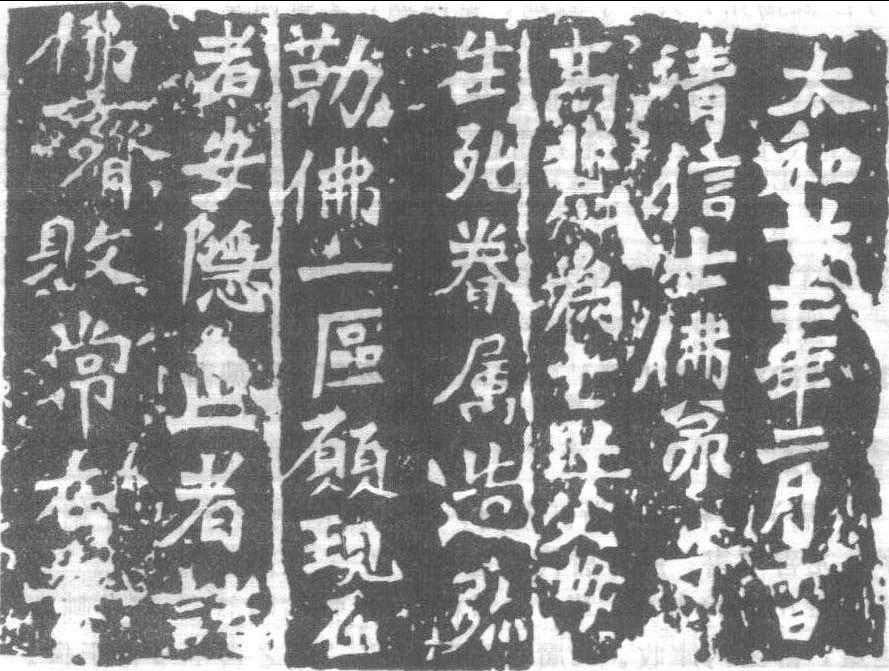 太和二年二月十日
清信士佛弟子
高為七世父母
生死眷属造弥
勒佛一區願現在
者安隱亡者諸
佛常在